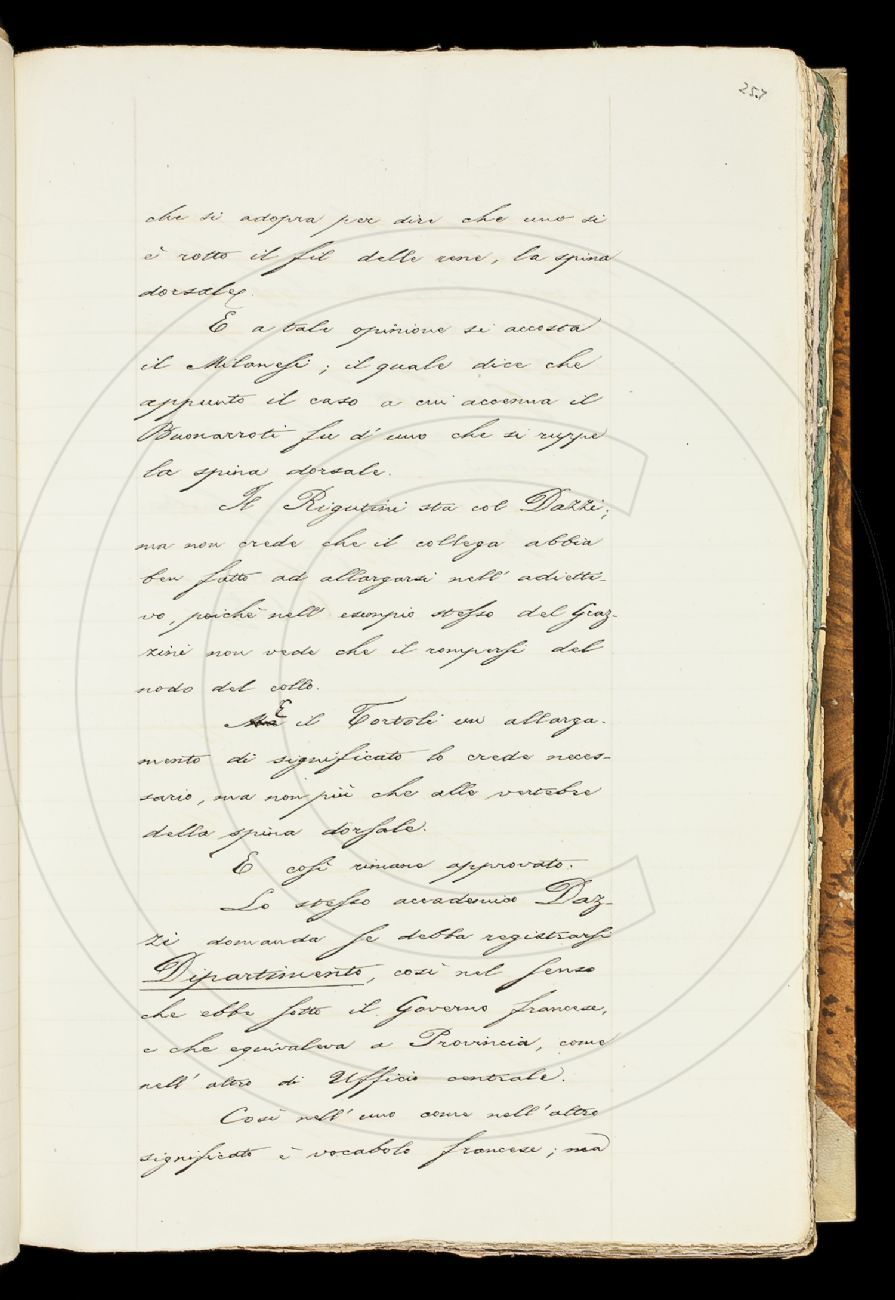 257
che si adopra per dire che uno si
è rotto il fil delle rene, la spina
dorsale.
E a tale opinione si accosta
il Milanesi; il quale dice che
appunto il caso a cui accenna il
Buonarroti fu d' uno che si ruppe
la spina dorsale.
Il Rigutini sta col Dazzi;
ma non crede che il collega abbia
ben fatto ad allargarsi nell' adietti-
vo, poichè nell' esempio stesso del Graz-
zini non vede che il rompersi del
nodo del collo.
E il Tortoli un allarga-
mento di significato lo crede neces-
sario, ma non più che alle vertebre
della spina dorsale.
E così rimane approvato.
Lo stesso accademico Daz-
zi domanda se debba registrarsi
Dipartimento, così nel senso
che ebbe sotto il Governo francese,
e che equivaleva a Provincia, come
nell' altro di Ufficio centrale.
Così nell' uno come nell' altro
significato è vocabolo francese; ma